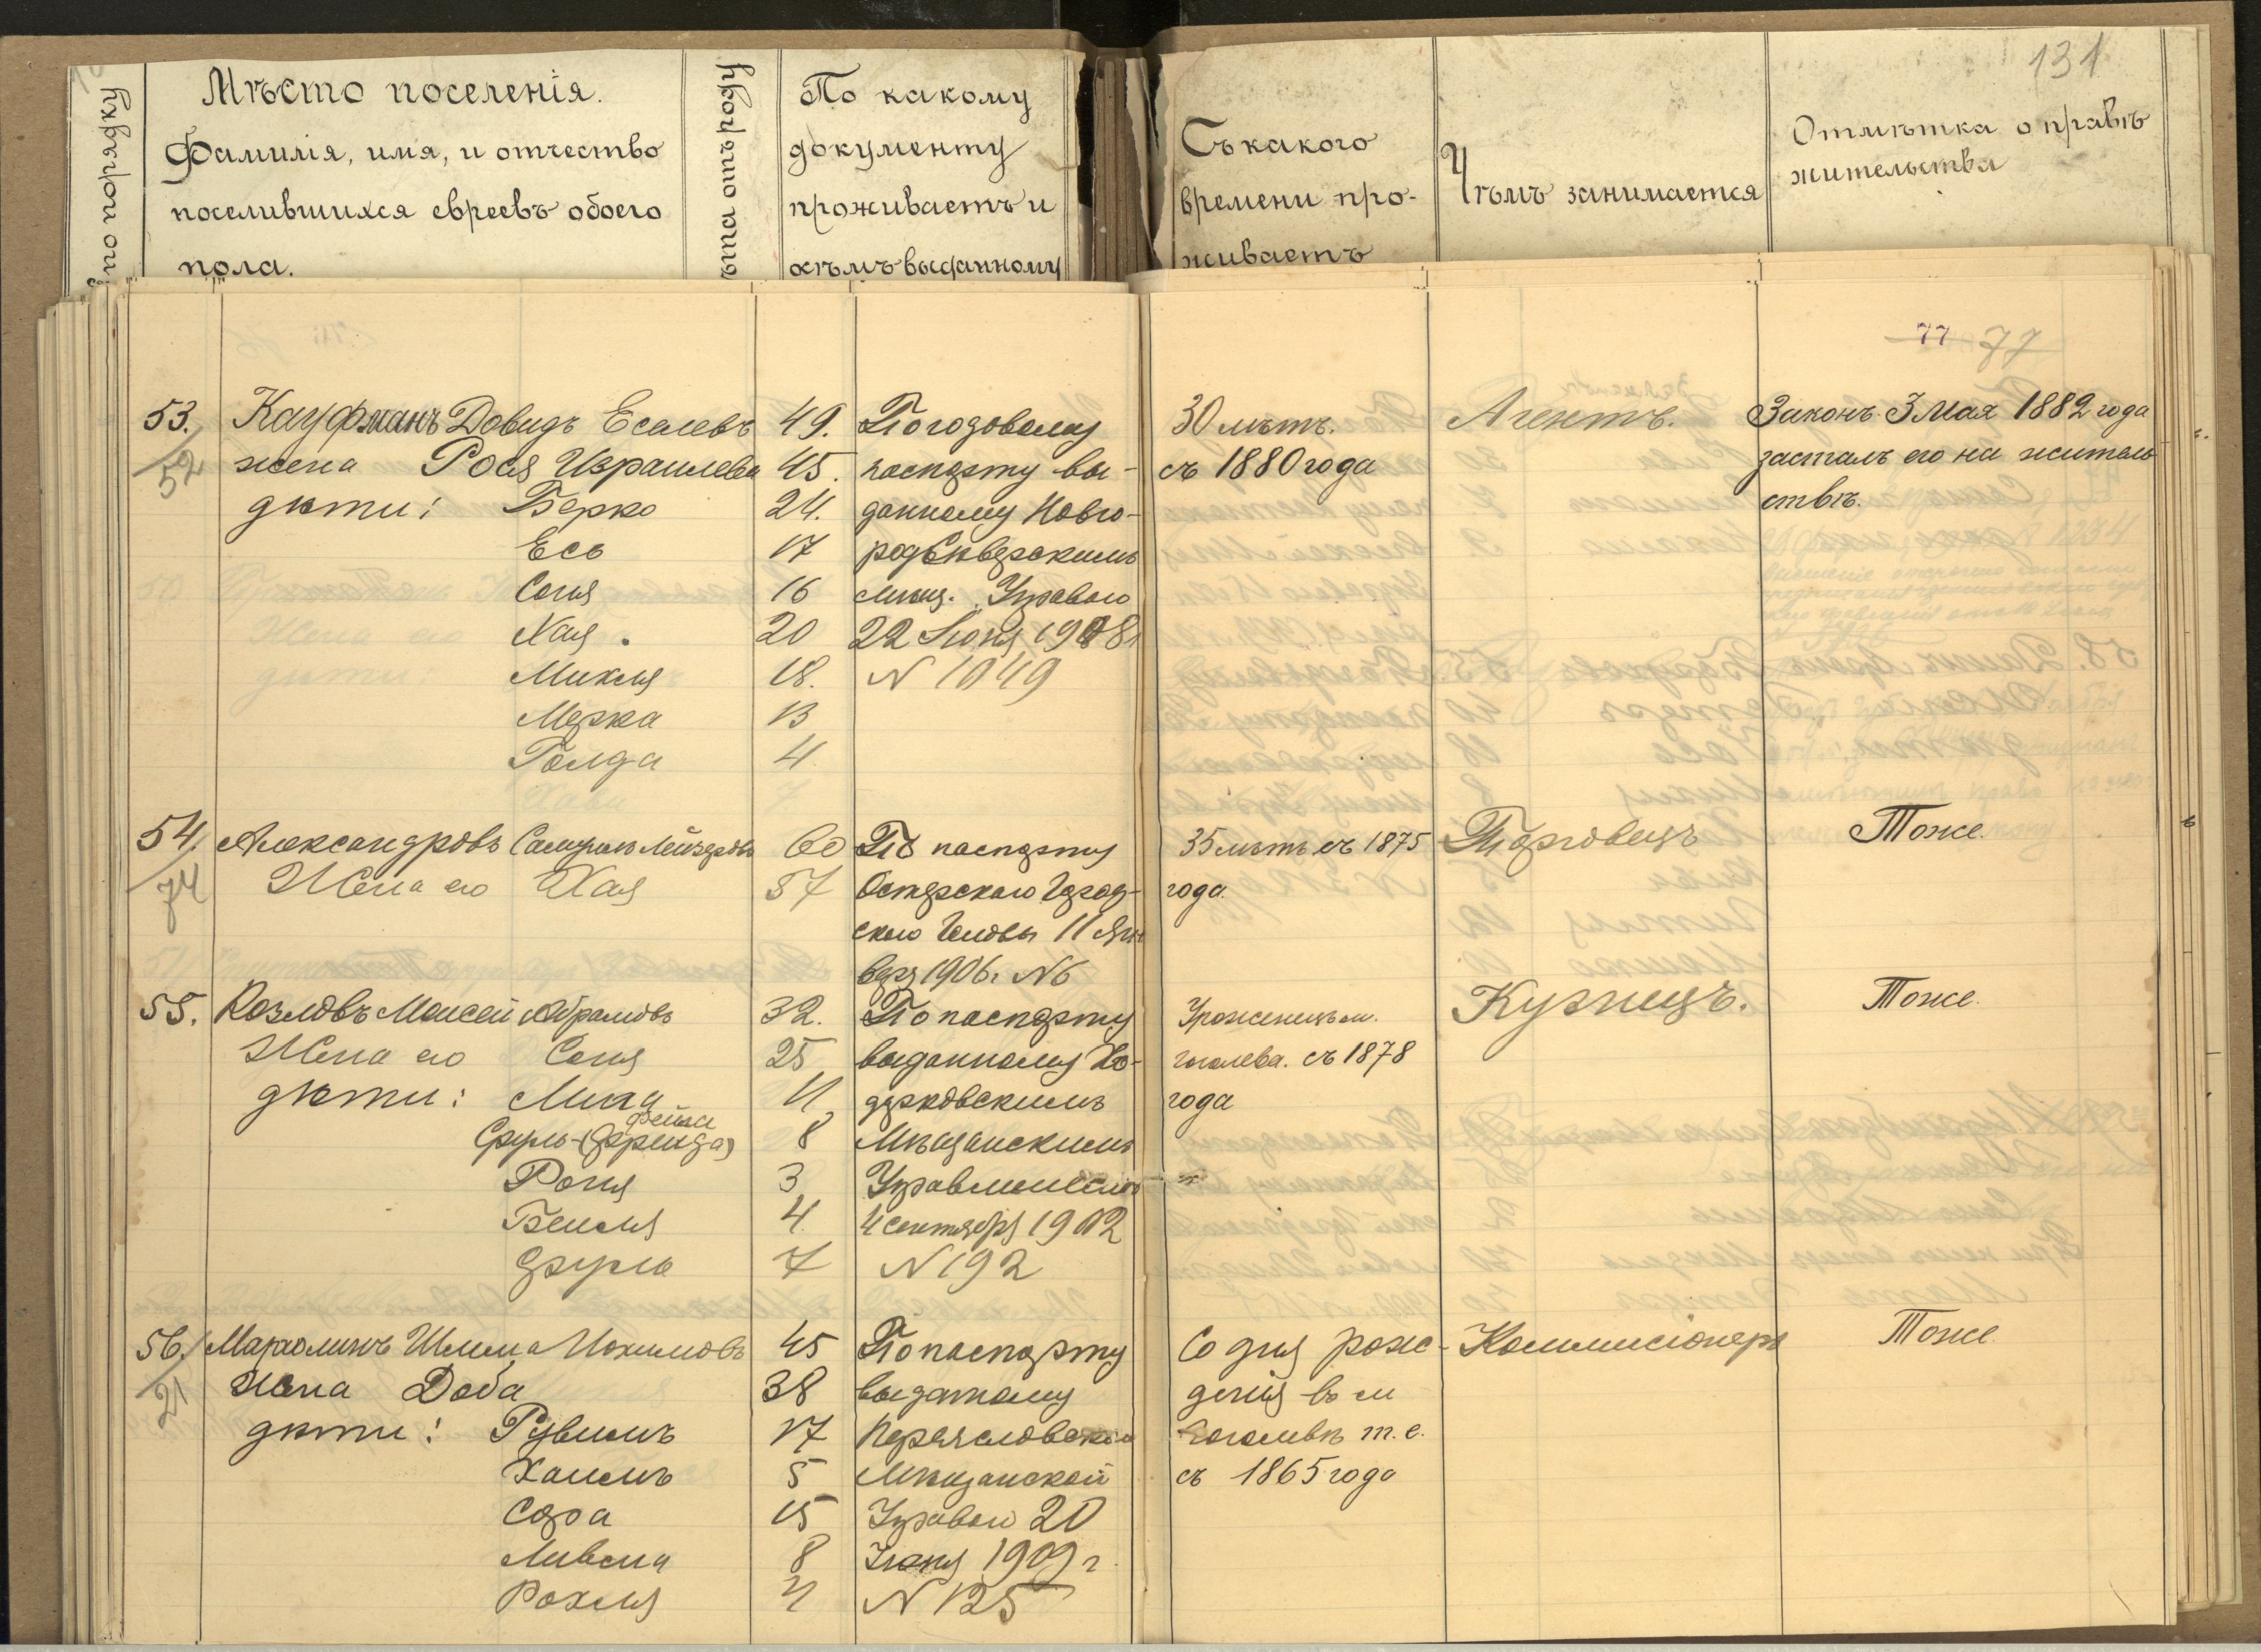 131
№ по порядку
Мѣсто поселенія.
Фамилія, имя, и отчество
поселившихся евреевъ обоего
пола.
ѣта отъ роду
По какому
документу
проживаетъ и
кѣмъ выданному
Съ какого
времени про-
живаетъ
Чѣмъ занимается
Отмѣтка о правѣ
жительства
77 77
53. Кауфманъ Довидъ Еселевъ 49. По годовому 30 лѣтъ. Агентъ. Законъ 3 мая 1882 года
52 жена Рося Израилева 45. паспорту вы- съ 1880 года засталъ его на житель
дѣти: Берко 24. данному Новго- ствѣ.
Есь 17 родсѣверскимъ
Соня 16 мѣщ. Управою
Хая. 20 22 Июня 1908
Михля 18. N 1049
Мерка 13
Голда 4
54. Александровъ Самуилъ Лейзеровъ 60 По паспорту 35 лѣтъ съ 1875 Торговецъ Тоже.
74 Жена его Хая 57 Остерскаго Город- года.
ского Головы 11 Ян
варя 1906. N6
55. Козловъ Моисей Абрамовъ 32. По паспорту Уроженецъ м. Кузнецъ. Тоже.
Жена его Соня 25 выданному Хо- гоголева. съ 1878
дѣти: 11 дорковскимъ года
Фейга
Сруль-(Фрейда) 8 Мѣщанскимъ
Роня 3 Управленіемъ
Бейля 4. 4 сентября 1902
Сруль 7 N 192
56. Марголинъ Шлема Иохимовъ 45 По паспорту Со дня рож- Коммисіонеръ Тоже
21 жена Доба 38 выданому денія въ м
дѣти: Рувимъ 17 Переяславской Гоголевѣ т.е.
Хаимъ 5 Мѣщанской съ 1865 года
Сора 15 Управою 20
8 Июня 1909 г.
Рохля N 125